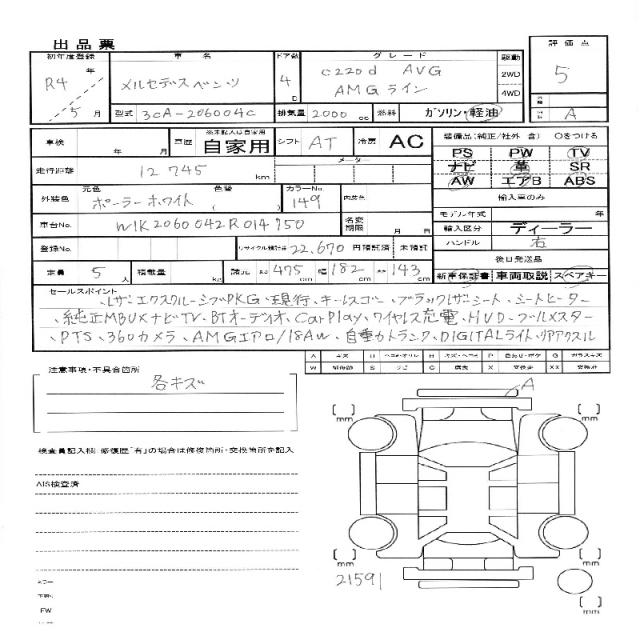 出品票
初年度登録 車名 ドア数 グレード 駆動 評価点
R4年 5月 メルセデスベンツ 4D C220d AVG AMGライン 2WD 4WD 5
型式 3CA-206004C 排気量 2000cc 燃料 ガソリン・軽油 A
車検 年 月 車歴 ※未記入は自家用 自家用 シフト AT 冷房 AC 装備品(純正/社外 含) Oをつける
走行距離 12745 km メーター PS PW TV
ナビ 革 SR
外装色 元色 ポーラーホワイト 色替 ( ) カラーNo. 149 内装色 AW エアB ABS
輸入車のみ
車台No. W1K2060042R014950 名変期限 月 日 モデル年式 年
輸入区分 ディーラー
登録No. リサイクル預託金 22,670 円預託済 未預託 ハンドル 右
後日発送品
定員 5人 積載量 kg 諸元 長さ 475cm 幅 182cm 高さ 143cm 新車保証書 車両取説 スペアキー
セールスポイント
、レザーエクスクルーシブPKG、現行、キーレスゴー、ブラックレザーシート、シートヒーター
、純正MBUXナビTV、BTオーディオ、CarPlay、ワイヤレス充電、HUD、ブルメスター
、PTS、360カメラ、AMGエアロ/18AW、自動カトランク、DIGITALライト、リアアクスル
注意事項・不具合箇所
各キズ
検査員記入欄 修復歴「有」の場合は修復箇所・交換箇所を記入
AIS検査済
A
mm mm
mm mm
21591
mm
FW